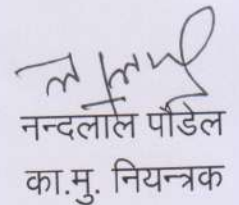 नन्दलाल पौडेल
का.मु. नियन्त्रक